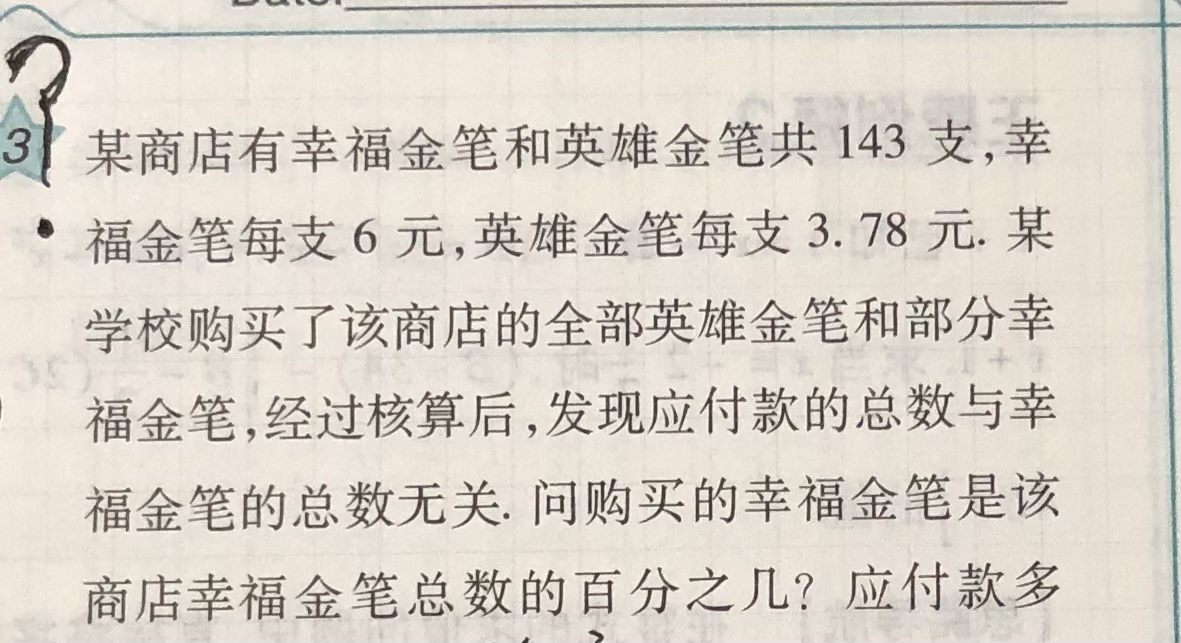 3 某商店有幸福金笔和英雄金笔共 143 支,幸
福金笔每支 6 元,英雄金笔每支 3.78 元. 某
学校购买了该商店的全部英雄金笔和部分幸
福金笔,经过核算后,发现应付款的总数与幸
福金笔的总数无关. 问购买的幸福金笔是该
商店幸福金笔总数的百分之几? 应付款多